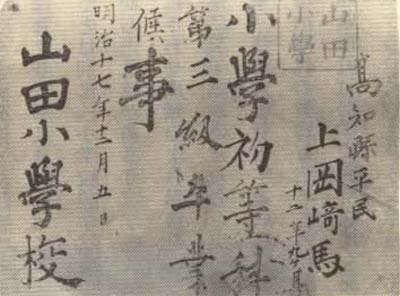 髙知縣平民
上岡﨑馬
十二年九月
山田
小學
小學初等科
第三級卒業
候事
明治十七年十二月五日
山田小學校